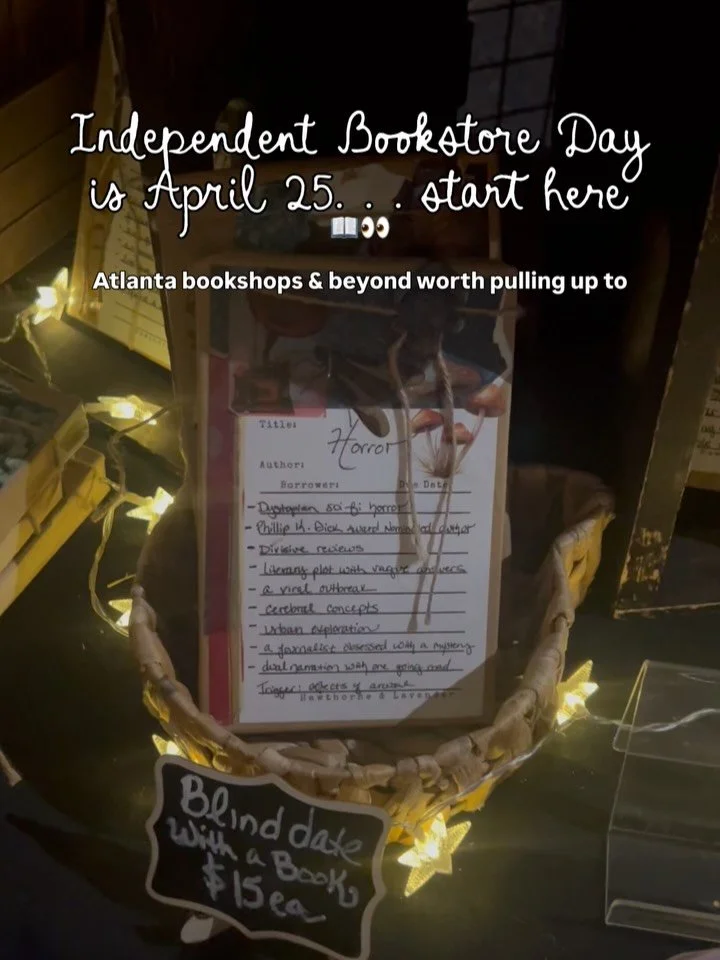 Independent Bookstore Day
is April 25. . . start here
📖👀
Atlanta bookshops & beyond worth pulling up to
Title:
Horror
Author:
Borrower: Due Date
- Dystopian sci-fi horror
- Phillip K. Dick Award Nominated author
- Divisive reviews
- literary plot with vague answers
- a viral outbreak
- cerebral concepts
- urban exploration
- a journalist obsessed with a mystery
- dual narration with one going mad
Trigger: effects of
Hawthorne & Lavender
Blind date
with a Book
$15 ea